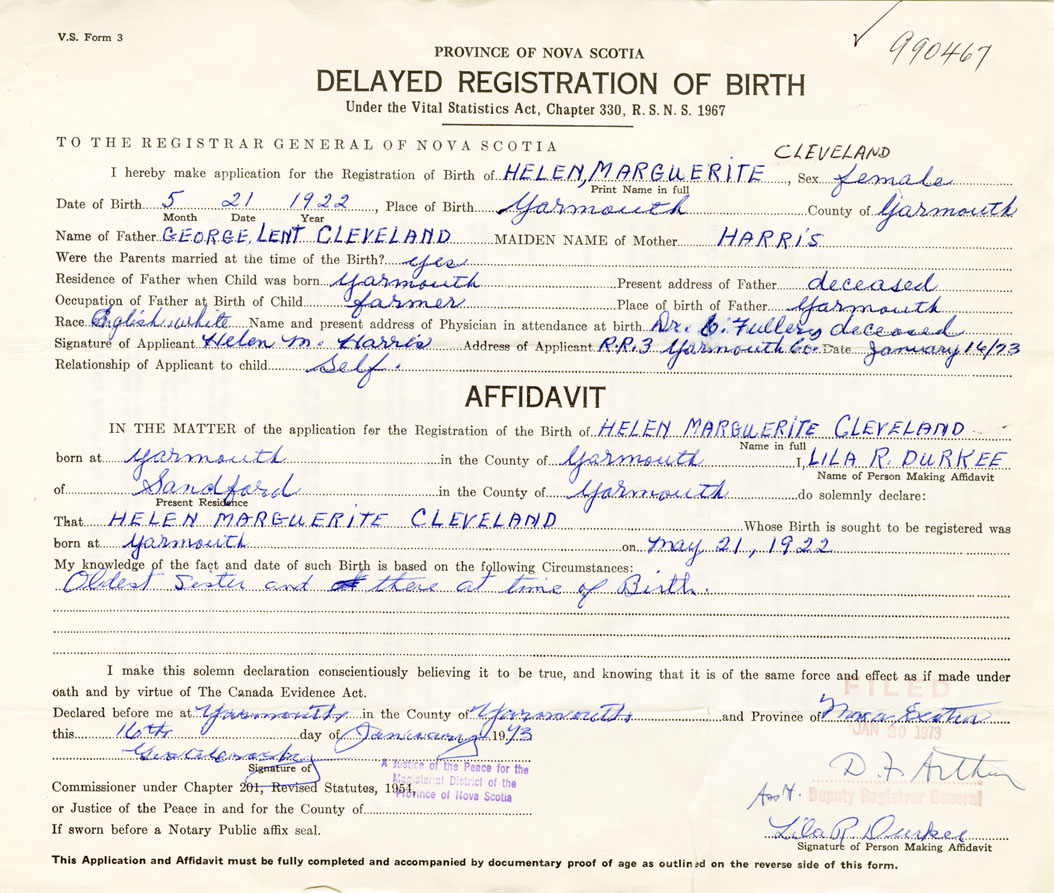 V.S. Form 3
990467
PROVINCE OF NOVA SCOTIA
DELAYED REGISTRATION OF BIRTH
Under the Vital Statistics Act, Chapter 330, R. S. N. S. 1967
TO THE REGISTRAR GENERAL OF NOVA SCOTIA
CLEVELAND
I hereby make application for the Registration of Birth of HELEN, MARGUERITE, Sex female
Print Name in full
Date of Birth 5 21 1922, Place of Birth Yarmouth County of Yarmouth
Month Date Year
Name of Father GEORGE, LENT CLEVELAND MAIDEN NAME of Mother HARRIS
Were the Parents married at the time of the Birth? yes
Residence of Father when Child was born Yarmouth Present address of Father deceased
Occupation of Father at Birth of Child farmer Place of birth of Father Yarmouth
Race English white Name and present address of Physician in attendance at birth Dr. deceased
Signature of Applicant Helen M. Harris Address of Applicant R.R.3 Yarmouth Co. Date January 16/73
Relationship of Applicant to child Self.
AFFIDAVIT
IN THE MATTER of the application for the Registration of the Birth of HELEN MARGUERITE CLEVELAND
Name in full
born at Yarmouth in the County of Yarmouth I, LILA R. DURKEE
Name of Person Making Affidavit
of Sandford in the County of Yarmouth do solemnly declare:
Present Residence
That HELEN MARGUERITE CLEVELAND Whose Birth is sought to be registered was
born at Yarmouth on May 21, 1922
My knowledge of the fact and date of such Birth is based on the following Circumstances:
Oldest sister and there at time of Birth.
I make this solemn declaration conscientiously believing it to be true, and knowing that it is of the same force and effect as if made under
oath and by virtue of The Canada Evidence Act.
FILED
Declared before me at Yarmouth in the County of Yarmouth and Province of Nova Scotia
this 16th day of January 1973
JAN 30 1973
Signature of
A Justice of the Peace for the
Magisterial District of the
Province of Nova Scotia
D. F. Arthur
Commissioner under Chapter 201, Revised Statutes, 1954,
Ass't. Deputy Registrar General
or Justice of the Peace in and for the County of
If sworn before a Notary Public affix seal.
Lila R Durkee
Signature of Person Making Affidavit
This Application and Affidavit must be fully completed and accompanied by documentary proof of age as outlined on the reverse side of this form.